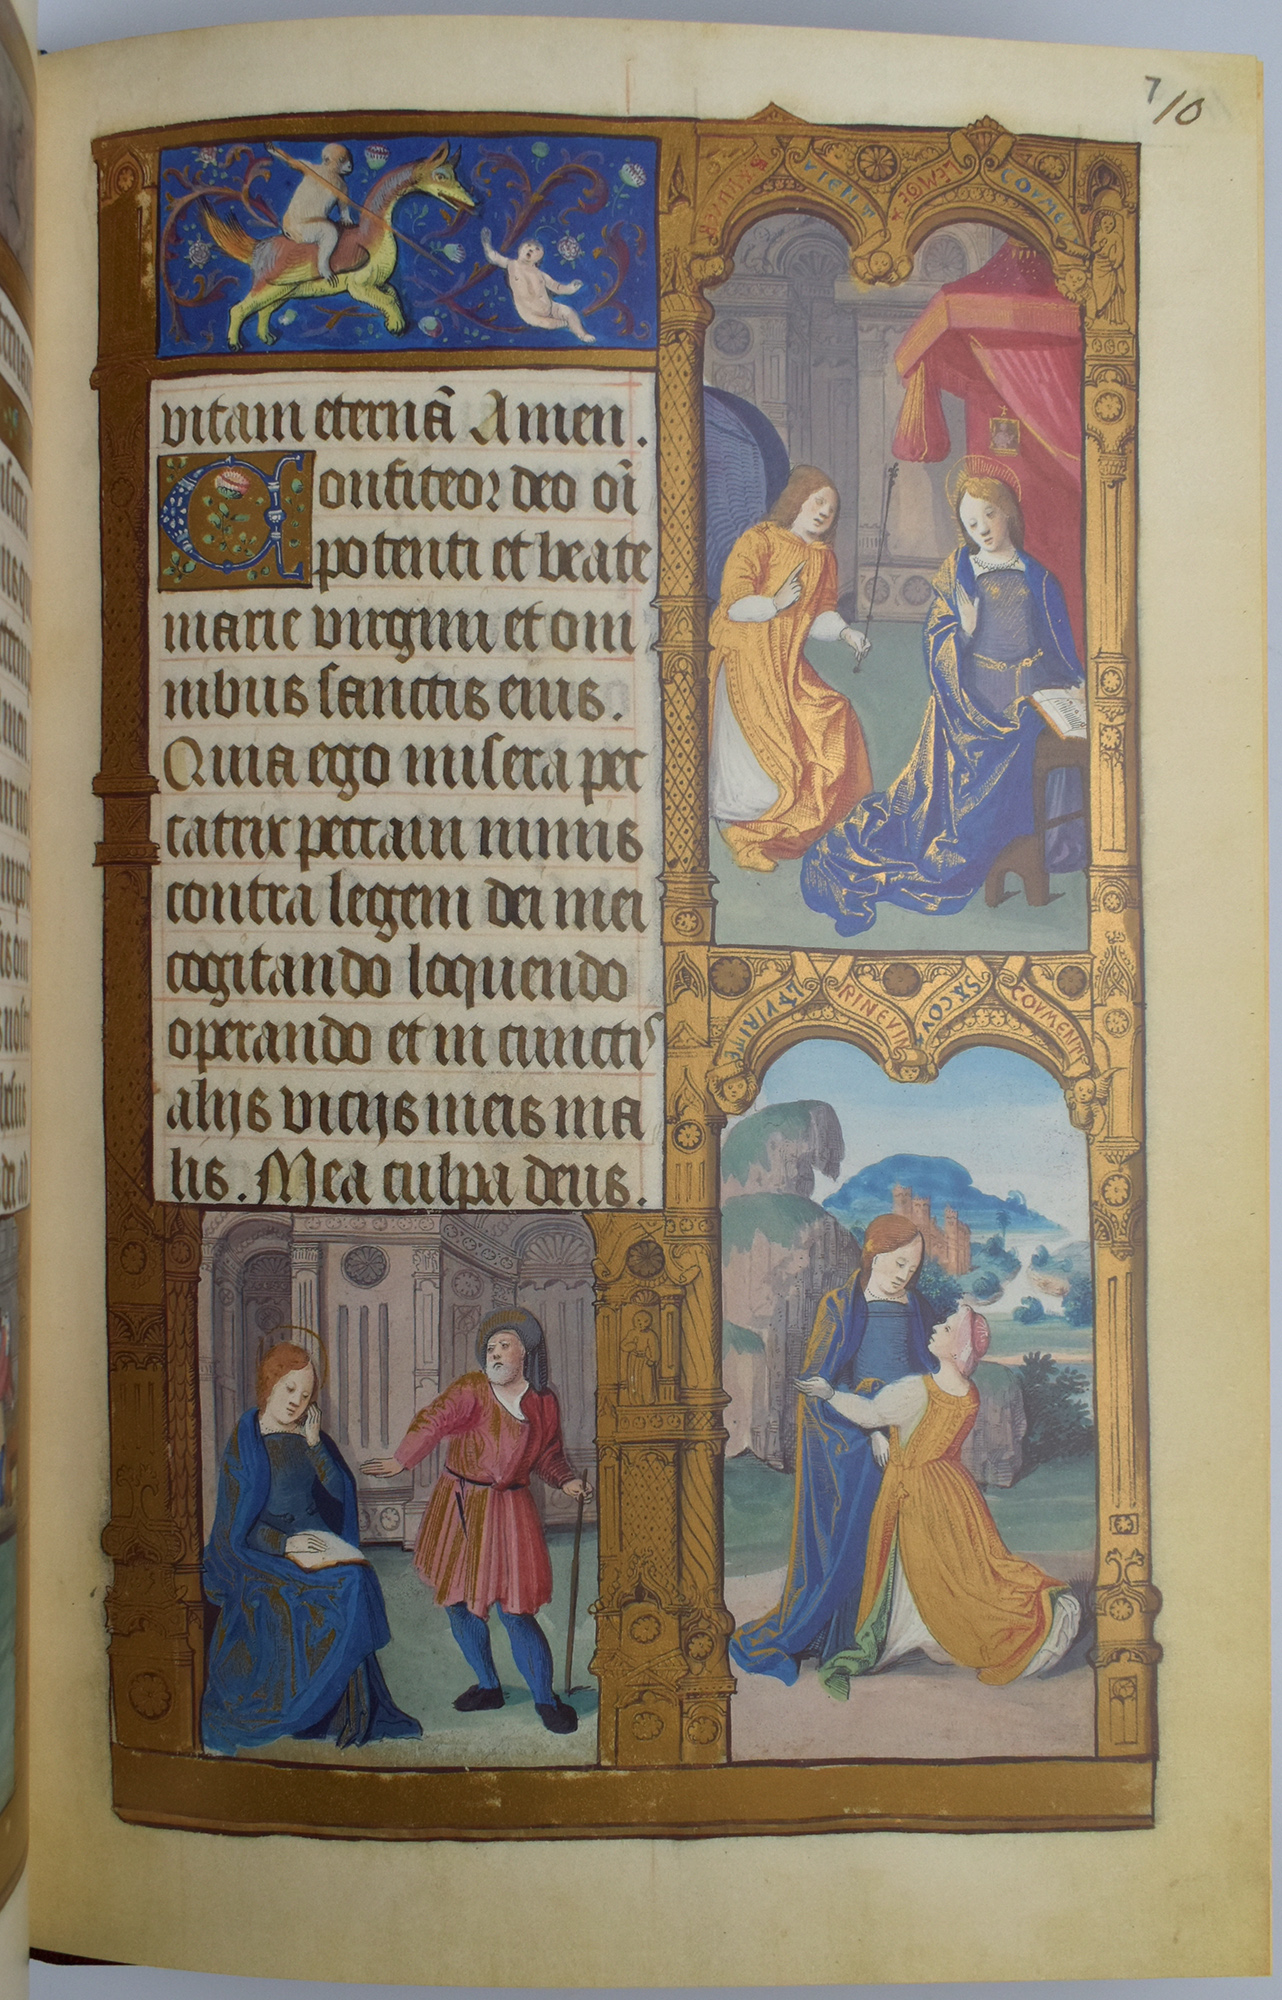 7/10
vitam eternã Amen.
Confiteor deo oı̃
potenti et beate
marie virgini et om
nibus sanctis eius.
Quia ego misera pec
catrix peccam nimis
contra legem dei mei
cogitando loquendo
operando et in cunctis
alijs vicijs meis ma
lis. Mea culpa deus.
COVME
COVMENT